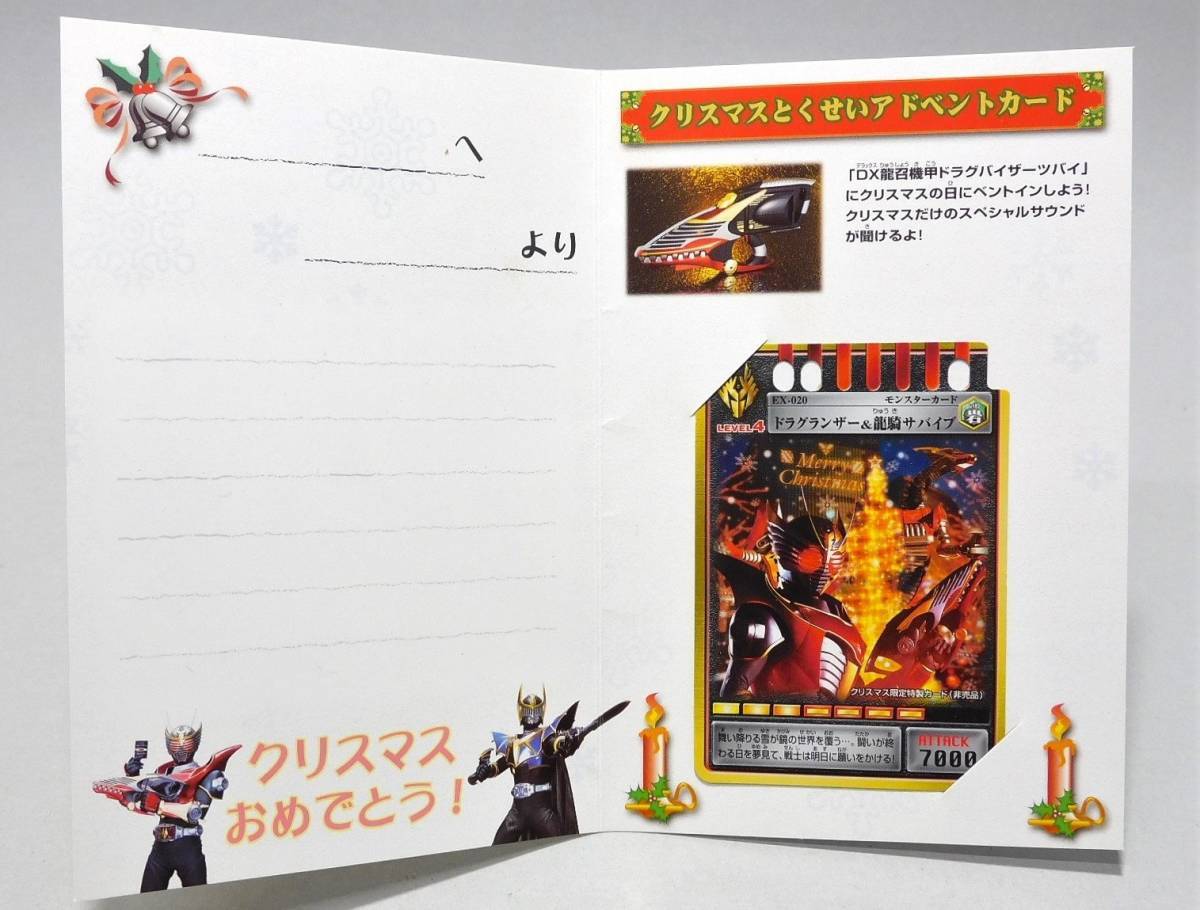 へ
より
クリスマス
おめでとう!
クリスマスとくせいアドベントカード
デラックス りゅうしょう き こう
「DX龍召機甲ドラグバイザーツバイ」
ひ
にクリスマスの日にベントインしよう!
クリスマスだけのスペシャルサウンド
き
が聞けるよ!
EX-020 モンスターカード
りゅう き
LEVEL4 ドラグランザー&龍騎サバイブ
Merry
Christmas
クリスマス限定特製カード(非売品)
舞い降りる雪が鏡の世界を覆う…。闘いが終
わる日を夢見て、戦士は明日に願いをかける!
ATTACK
7000